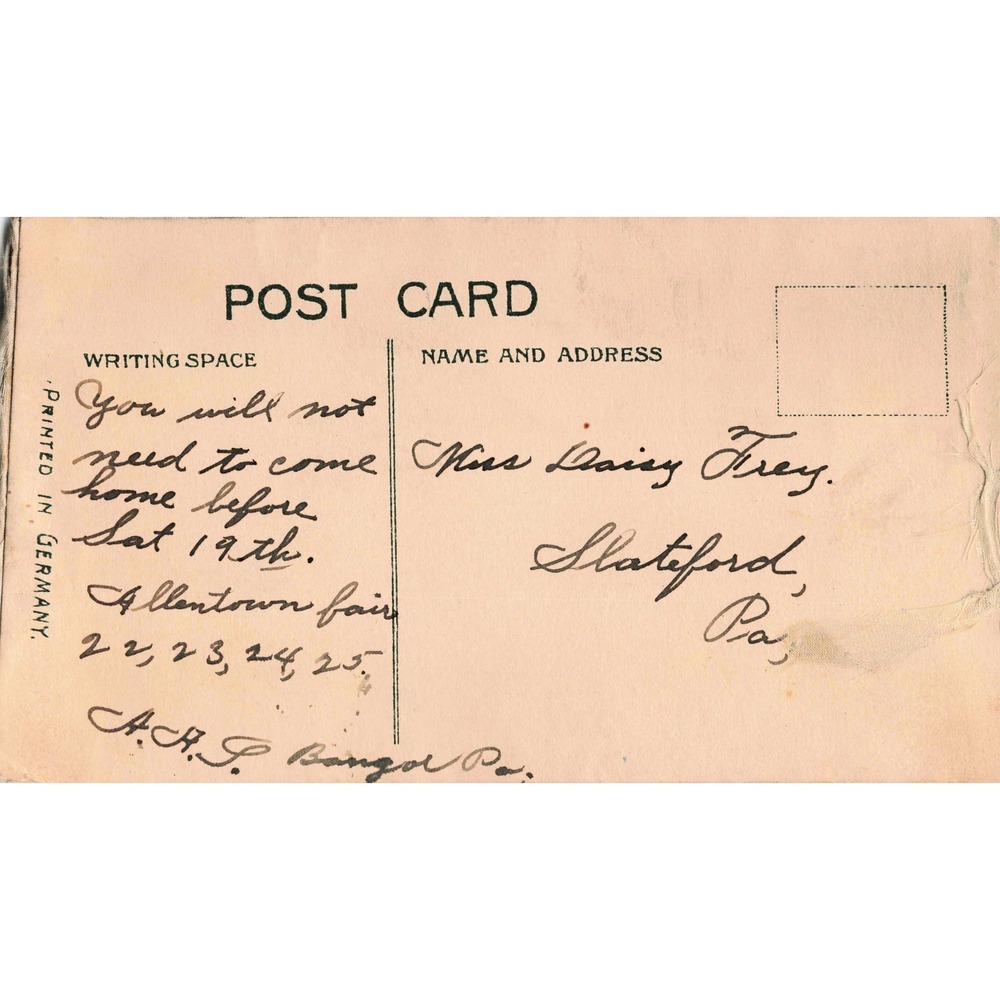 POST CARD
WRITING SPACE
NAME AND ADDRESS
PRINTED IN GERMANY.
You will not
need to come
home before
Sat 19th.
Allentown fair
22, 23, 24, 25.
A. H. S. Bangor Pa.
Miss Daisy Frey.
Slateford,
Pa,